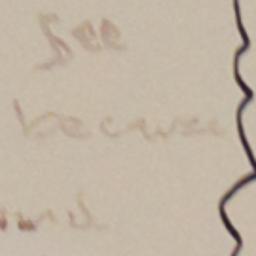 See
because
and